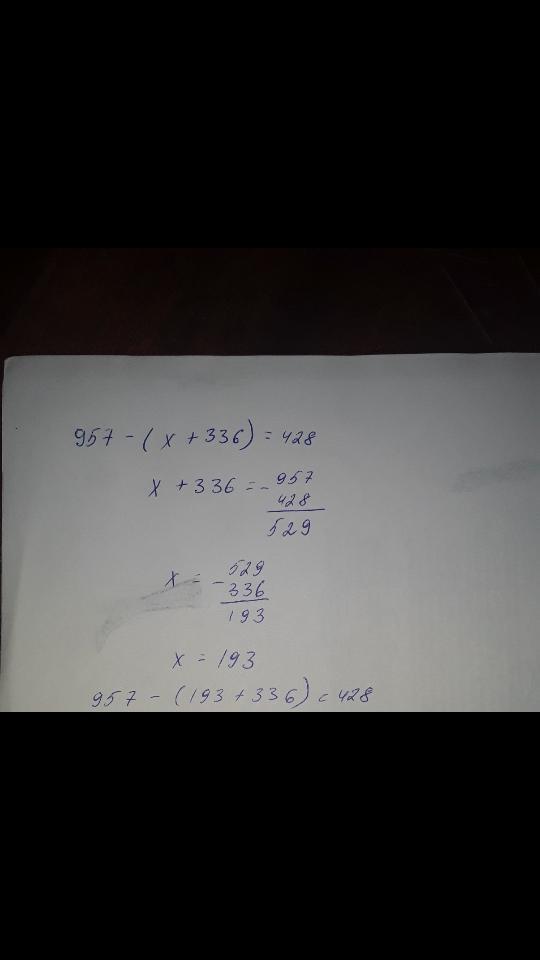 957 - ( x + 336 ) = 428
x + 336 = - 957
428
529
x = - 529
336
193
x = 193
957 - (193 + 336) = 428